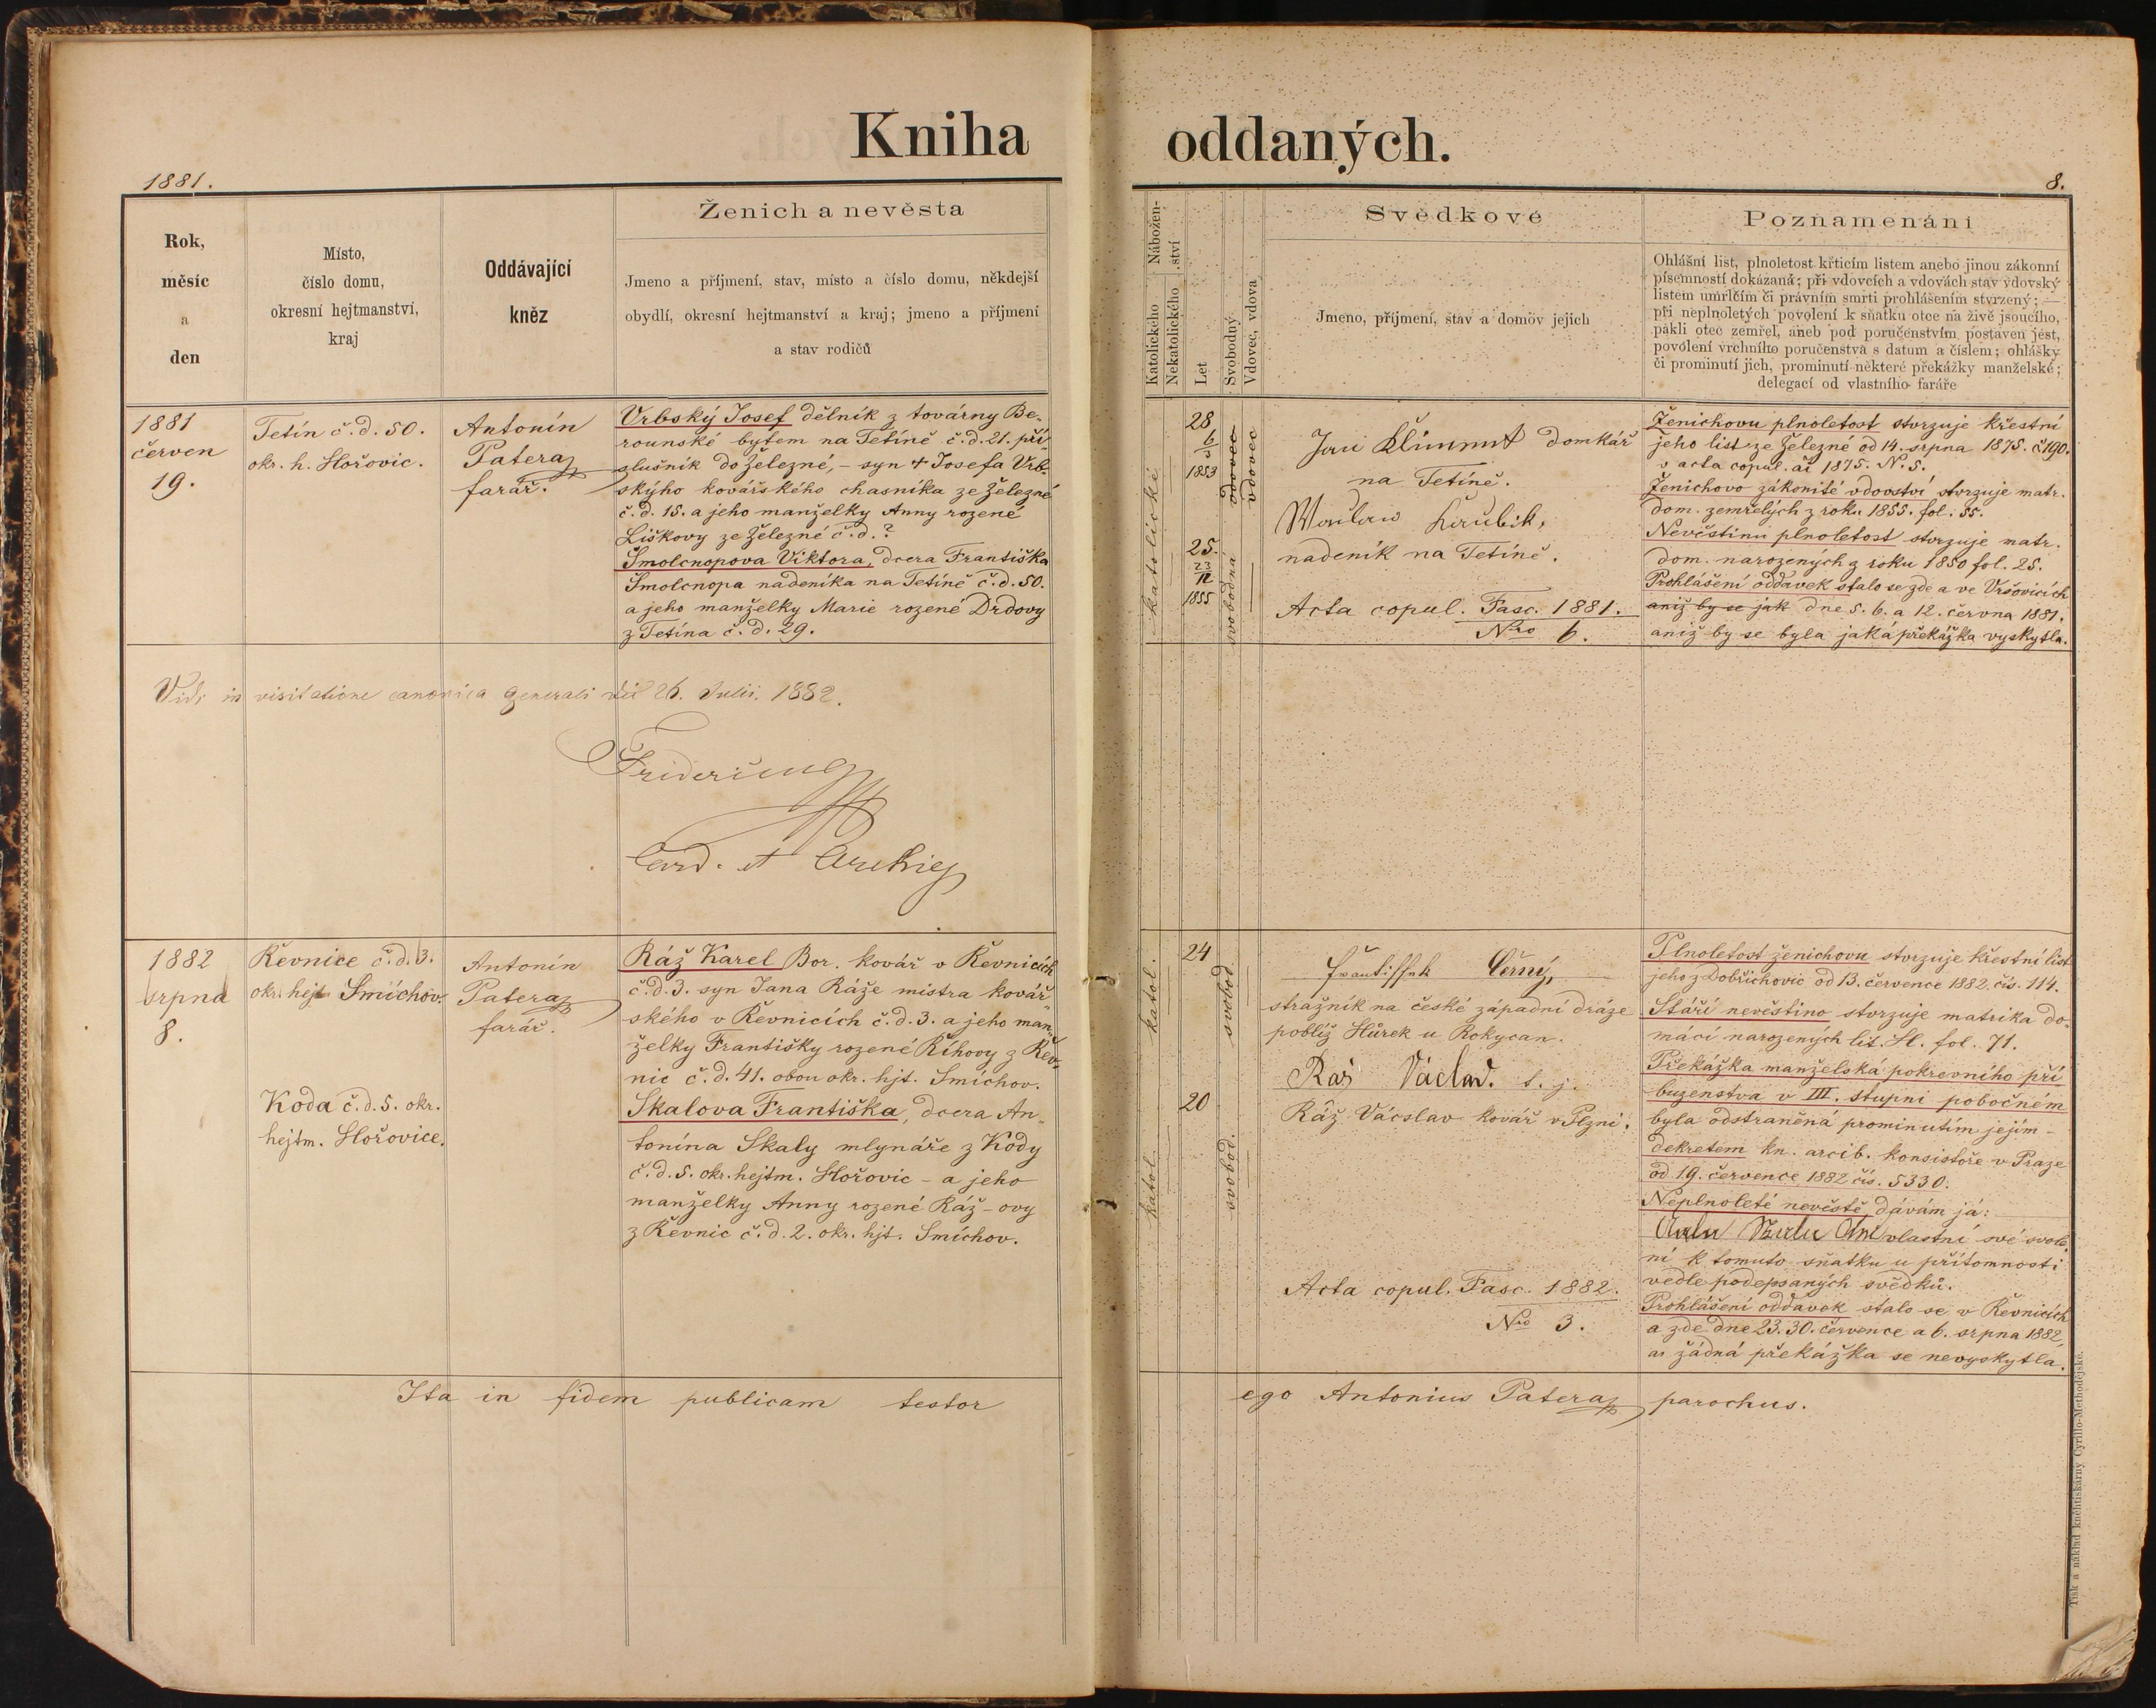 Kniha oddaných.
1881.
8.
Rok,
měsíc
a
den
Místo,
číslo domu,
okresní hejtmanství,
kraj
Oddávající
kněz
Ženich a nevěsta
Jmeno a příjmení, stav, místo a číslo domu, někdejší
obydlí, okresní hejtmanství a kraj; jmeno a příjmení
a stav rodičů
Nábožen-
ství
Katolického
Nekatolického
Let
Svobodný
Vdovec, vdova
Svědkové
Jmeno, příjmení, stav a domov jejich
Poznamenání
Ohlášní list, plnoletost křticím listem anebo jinou zákonní
písemností dokázaná; při vdovcích a vdovách stav vdovský
listem úmrlčím či právním smrti prohlášením stvrzený; —
při neplnoletých povolení k sňatku otce na živě jsoucího,
pakli otec zemřel, aneb pod poručenstvím postaven jest,
povolení vrchního poručenstva s datum a číslem; ohlášky
či prominutí jich, prominutí některé překážky manželské;
delegací od vlastního faráře
1881
červen
19.
Tetín č. d. 50.
okr. h. Hořovic.
Antonín
Patera
farář.
Vrbský Josef dělník z továrny Be-
rounské bytem na Tetíně č. d. 21. pří-
slušník do Železné, – syn † Josefa Vrb-
skýho kovářského chasníka ze Železné
č. d. 15. a jeho manželky Anny rozené
Liškovy ze Železné č. d. ?
Šmolcnopova Viktora, dcera Františka
Šmolcnopa nadeníka na Tetíně č. d. 50.
a jeho manželky Marie rozené Drdovy
z Tetína č. d. 29.
katolické
28
6
1853
vdovec
vdovec
25.
23
12
1855
svobodna
Jan Klimmt domkář
na Tetíně.
nadeník na Tetíně.
Acta copul. Fasc. 1881.
Nro 6.
Ženichovu plnoletost stvrzuje křestní
jeho list ze Železné od 14. srpna 1875. č. 190.
v acta copul. 1875. N. 5.
Ženichovo zákonité vdovství stvrzuje matr.
dom. zemřelých z roku 1855. fol. 55.
Nevěstinu plnoletost stvrzuje matr.
dom. narozených z roku 1850 fol. 25.
Prohlášení oddavek stalo se zde a ve Vršovicích
aniž by se jak dne 5. 6. a 12. června 1881.
aniž by se byla jaká překážka vyskytla.
Vidi in visitatione canonica generali die 26. Julii. 1882.
Fridericus
Card. et Archiep
1882
srpna
8.
Řevnice č. d. 3.
okr. hejt. Smíchov.
Koda č. d. 5. okr.
hejtm. Hořovice.
Antonín
Patera
farář.
Ráž Karel Bor. kovář v Řevnicích
č. d. 3. syn Jana Ráže mistra kovář-
ského v Řevnicích č. d. 3. a jeho man-
želky Františky rozené Říhovy z Řev-
nic č. d. 41. obou okr. hjt. Smíchov.
Skalova Františka, dcera An-
tonína Skaly mlynáře z Kody
č. d. 5. okr. hejtm. Hořovic – a jeho
manželky Anny rozené Ráž-ovy
z Řevnic č. d. 2. okr. hjt. Smíchov.
katol.
24
svobod.
katol.
20
svobod.
Frantisshek Černý,
stražník na české západní dráze
poblíž Hůrek u Rokycan.
Ráš Václav. s. j.
Ráž Vácslav kovář v Plzni.
Acta copul. Fasc. 1882.
Nro 3.
Plnoletost ženichovu stvrzuje křestní list
jeho z Dobřichovic od 13. července 1882. čís. 114.
Stáří nevěstino stvrzuje matrika do-
mácí narozených lit. H. fol. 71.
Překážka manželská pokrevního pří
buzenstva v III. stupni pobočném
byla odstraněna prominutím jejím –
dekretem kn. arcib. konsistoře v Praze
od 19. července 1882 čís. 5330.
Neplnoleté nevěstě dávám já:
vlastní své svole-
ní k tomuto sňatku u přítomnosti
vedle podepsaných svědků.
Prohlášení oddavek stalo se v Řevnicích
a zde dne 23. 30. července a 6. srpna 1882,
až žádná překážka se nevyskytla.
Ita in fidem publicam testor ego Antonius Patera parochus.
Tisk a náklad kněhtiskárny Cyrillo-Methodějské.